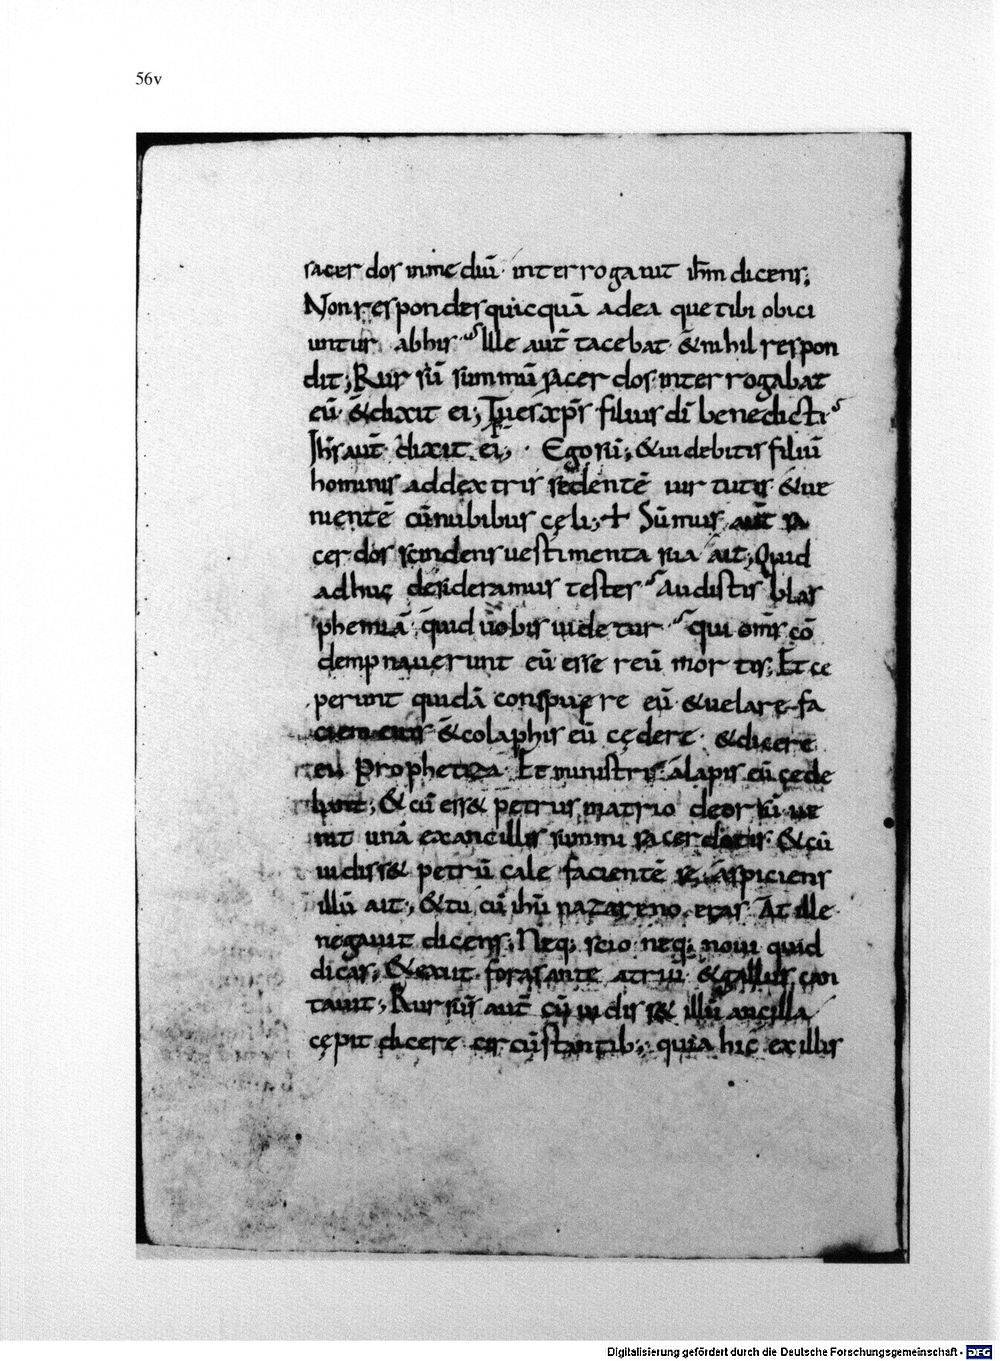 56v
sacer dos inmediū· interrogauit ihm̄ dicens;
Non respondes quicquā adea que tibi obici
untur abhis Ille aut̄ tacebat· &nihil respon
dit; Rur sū summū sacer dos·inter rogabat
eū· &dixit ei; Tu es xp̄s filius dī benedicti
Ih̄s aut̄ dixit ei; Ego sū; &uidebitis filiū
hominis addextris sedentē uir tutis &ue
nientē cūnubibus cęli; + Sūmus aut̄ sa
cer dos scindens uestimenta sua ait; Quid
adhuc desideramus testes Audistis blas
phemiā· quid uobis uidetur qui om̄s cō
dempnauerunt eū esse reū mor tis; Et ce
perunt quidā conspuere eū &uelare fa
ciem eius &colaphis eū cędere· &dicere
eu Prophetiza· Et ministri alapis eū cede
bant; & cū ess& petrus inatrio deorsū ue
nit unā exancillis summi sacerdotis· &cū
uidiss& petrū cale facientē se· aspiciens
illū ait; &tu cū ihū nazareno eras At ille
negauit dicens; Neq; scio neq; noui quid
dicas; &exiit foras ante atriū &gallus can
tauit; Rursus aut̄ cū uidiss& illū ancilla
cępit dicere circūstantib; quia hic exillis
Digitalisierung gefördert durch die Deutsche Forschungsgemeinschaft - DFG